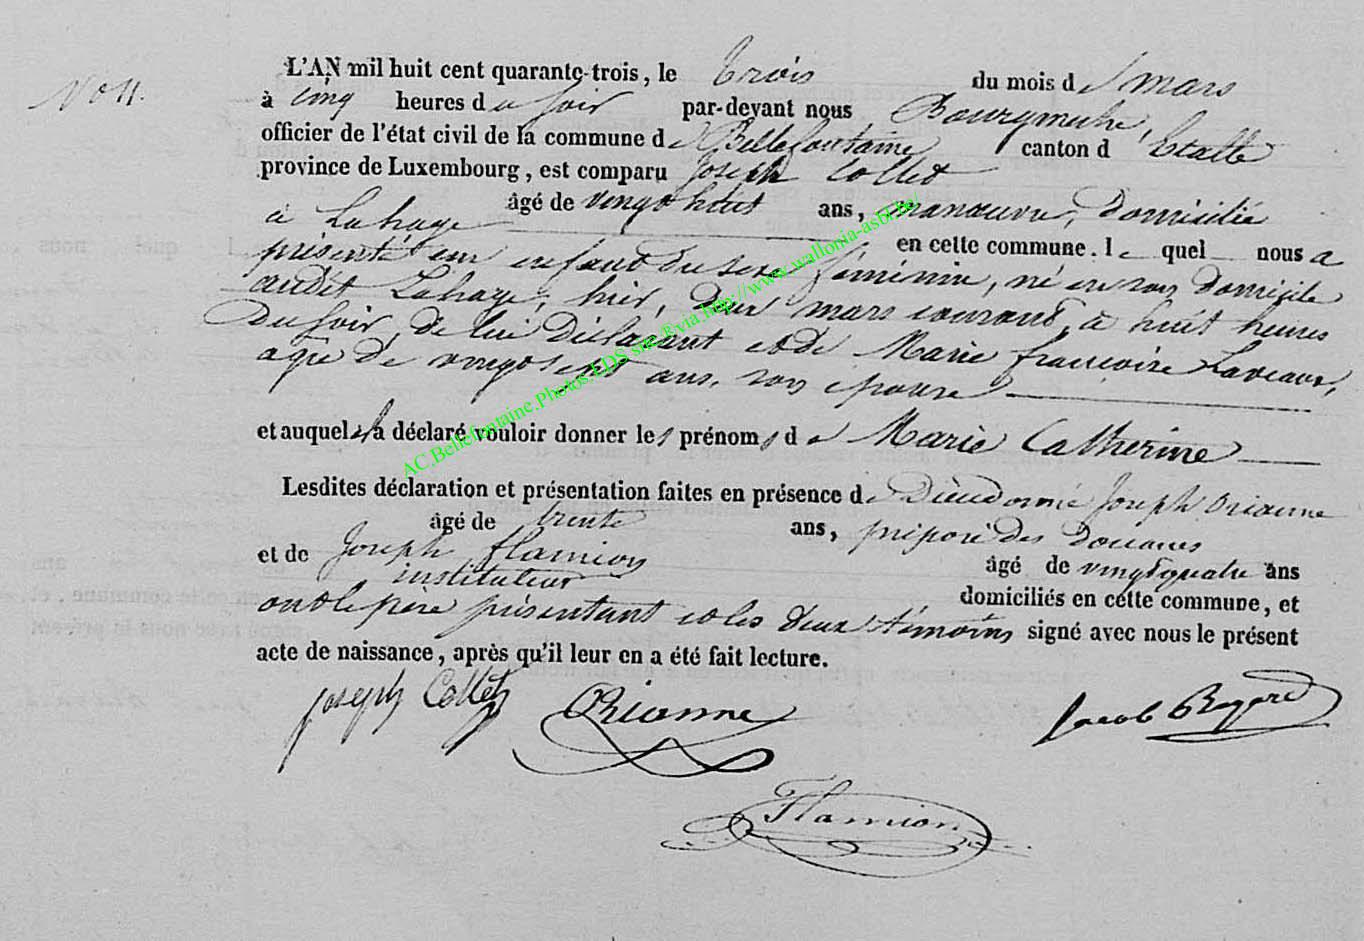 No 11.
L'AN mil huit cent quarante-trois, le trois du mois de mars
à cinq heures du soir par-devant nous Bourgmestre,
officier de l'état civil de la commune de Bellefontaine canton d'Etalle
province de Luxembourg, est comparu Joseph Collet
âgé de vingt huit ans, manœuvre, domicilié
à Lahage en cette commune. lequel nous a
présenté un enfant du sexe féminin, né en son domicile
audit Lahage, hier, deux mars courant, à huit heures
du soir, de lui déclarant et de Marie françoise Laveaux,
agée de vingt sept ans, son épouse
et auquel il a déclaré vouloir donner les prénoms de Marie Catherine
Lesdites déclaration et présentation faites en présence de Dieudonné Joseph Orianne
âgé de trente ans, préposé des Douanes
et de Joseph flamion âgé de vingt quatre ans
instituteur domiciliés en cette commune, et
ont le père présentant et les deux témoins signé avec nous le présent
acte de naissance, après qu'il leur en a été fait lecture.
joseph Collet Orianne Jacob
Flamion
AC.Bellefontaine.Photos.EDS sprl &via http://www.wallonia-asbl.be/